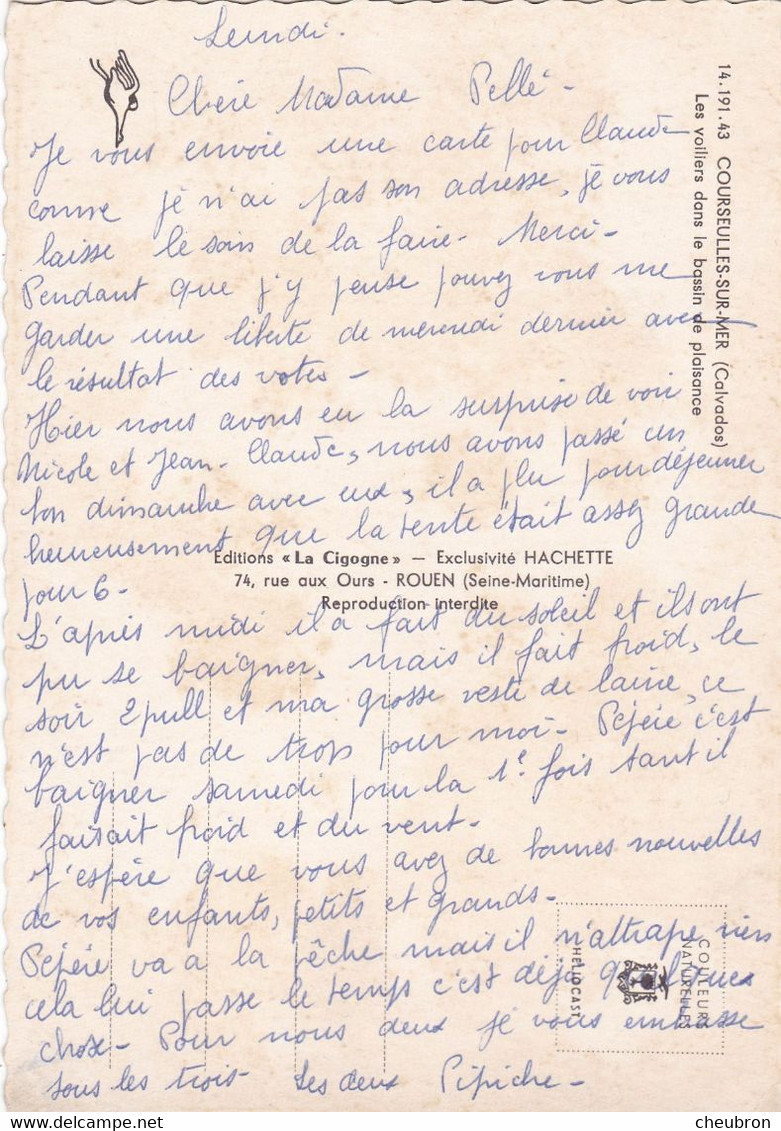 Lundi.
Chère Madame Pellé -
Je vous envoie une carte pour Claude
comme je n'ai pas son adresse, je vous
laisse le soin de la faire - Merci -
Pendant que j'y pense pouvez vous me
garder une liberté de mercredi dernier avec
le résultat des votes -
Hier nous avons eu la surprise de voir
Nicole et Jean-Claude, nous avons passé un
bon dimanche avec eux, il a plu pour déjeuner
heureusement que la tente était assez grande
pour 6 -
L'après midi il a fait du soleil et ils ont
pu se baigner, mais il fait froid, le
soir 2 pull et ma grosse veste de laine, ce
n'est pas de trop pour moi - Pépère c'est
baigner samedi pour la 1e fois tant il
faisait froid et du vent -
J'espère que vous avez de bonnes nouvelles
de vos enfants, petits et grands -
Pépère va a la pêche mais il n'attrape rien
cela lui passe le temps c'est déjà quelque
chose - Pour nous deux je vous embrasse
tous les trois - Les deux Pipiche -
14.191.43 COURSEULLES-SUR-MER (Calvados)
Les voiliers dans le bassin de plaisance
Editions « La Cigogne » — Exclusivité HACHETTE
74, rue aux Ours - ROUEN (Seine-Maritime)
Reproduction interdite
COULEURS
NATURELLES
HELIOCAST
cheubron